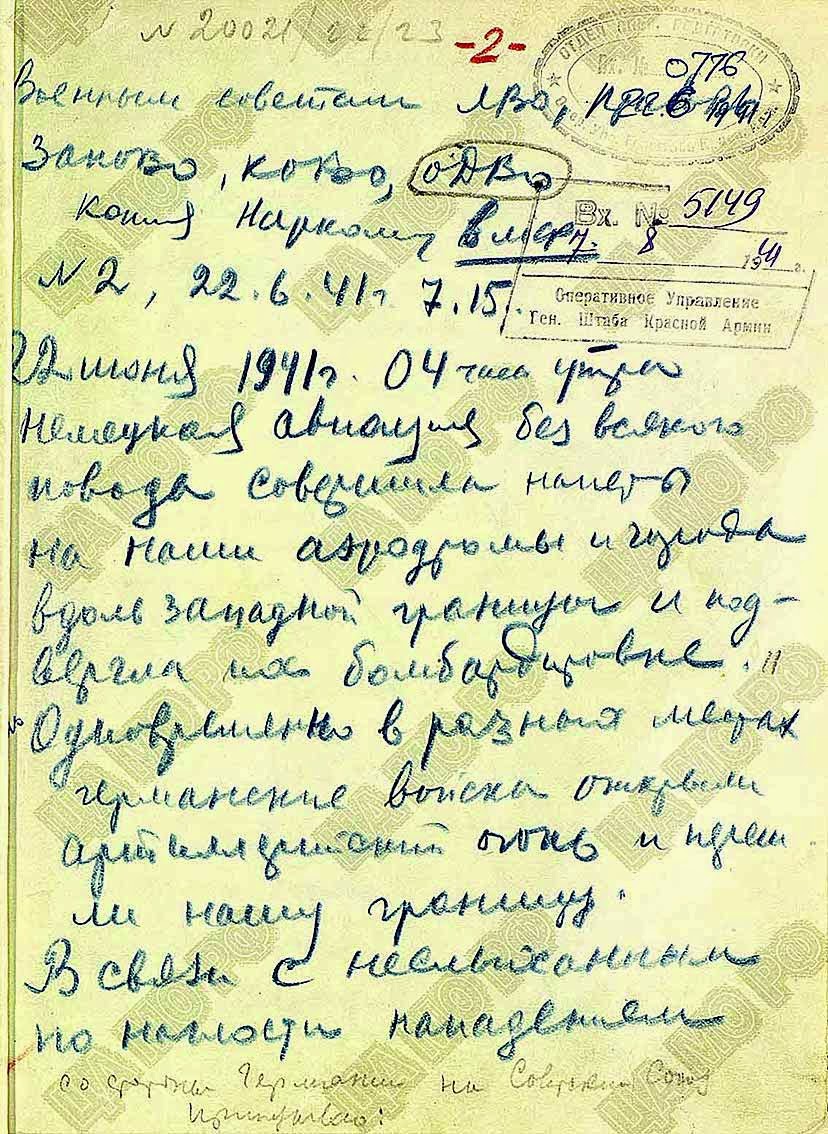 N 20021/22/23 -2-
Военным советам ЛВО, ПрибОВО,
ЗапОВО, КОВО, ОДВО
Копия Наркому ВМФ
N 2, 22.6.41г 7.15.
22 июня 1941г. 04 часа утра
немецкая авиация без всякого
повода совершила налеты
на наши аэродромы и города
вдоль западной границы и под-
вергла их бомбардировке. "
Одновременно в разных местах
германские войска открыли
артиллерийский огонь и переш
ли нашу границу.
В связи с неслыханным
по наглости нападением
со стороны Германии на Советский Союз
Приказываю:
0776
Вх. № 5149
7. 8 1941 г.
Оперативное Управление
Ген. Штаба Красной Армии
ЦАМО РФ